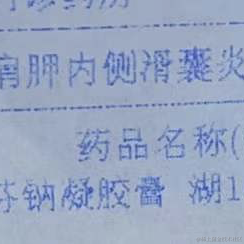 肩胛内侧滑囊炎
药品名称(
芬钠凝胶膏 湖1